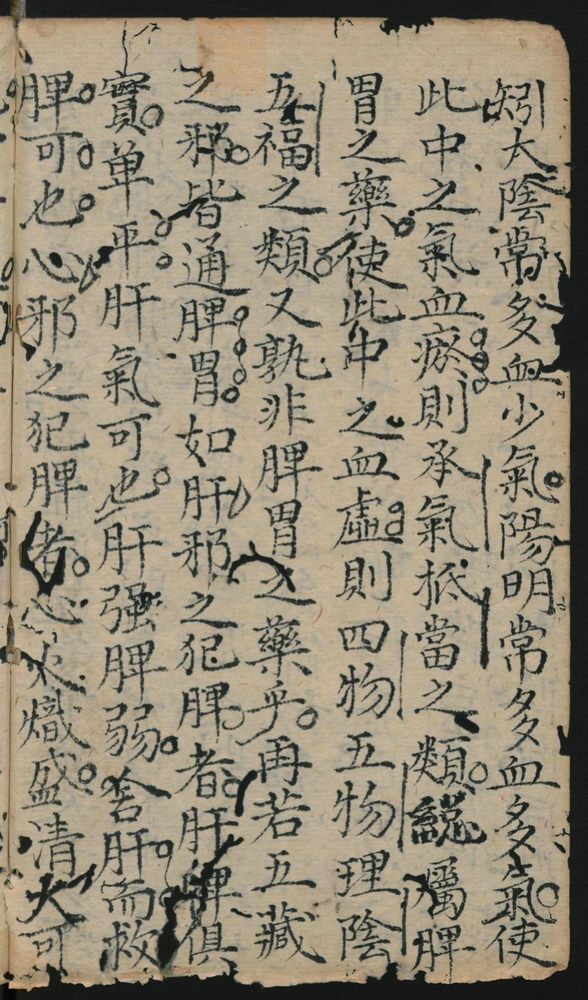 矧太陰常多血少氣陽明常多血多氣使
此中之氣血瘀則承氣抵當之類總屬脾
胃之藥使此中之血虛則四物五物理陰
五福之類又孰非脾胃之藥乎再若五藏
之邪皆通脾胃如肝邪之犯脾者肝脾俱
實單平肝氣可也肝强脾弱舍肝而救
脾可也心邪之犯脾者心火熾盛清火可